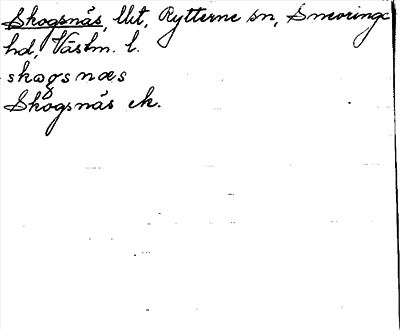 Skogsnäs, Utt, Rytterne sn, Snevringe
hd, Västm. l.
skogsnæs
Skogsnäs ek.